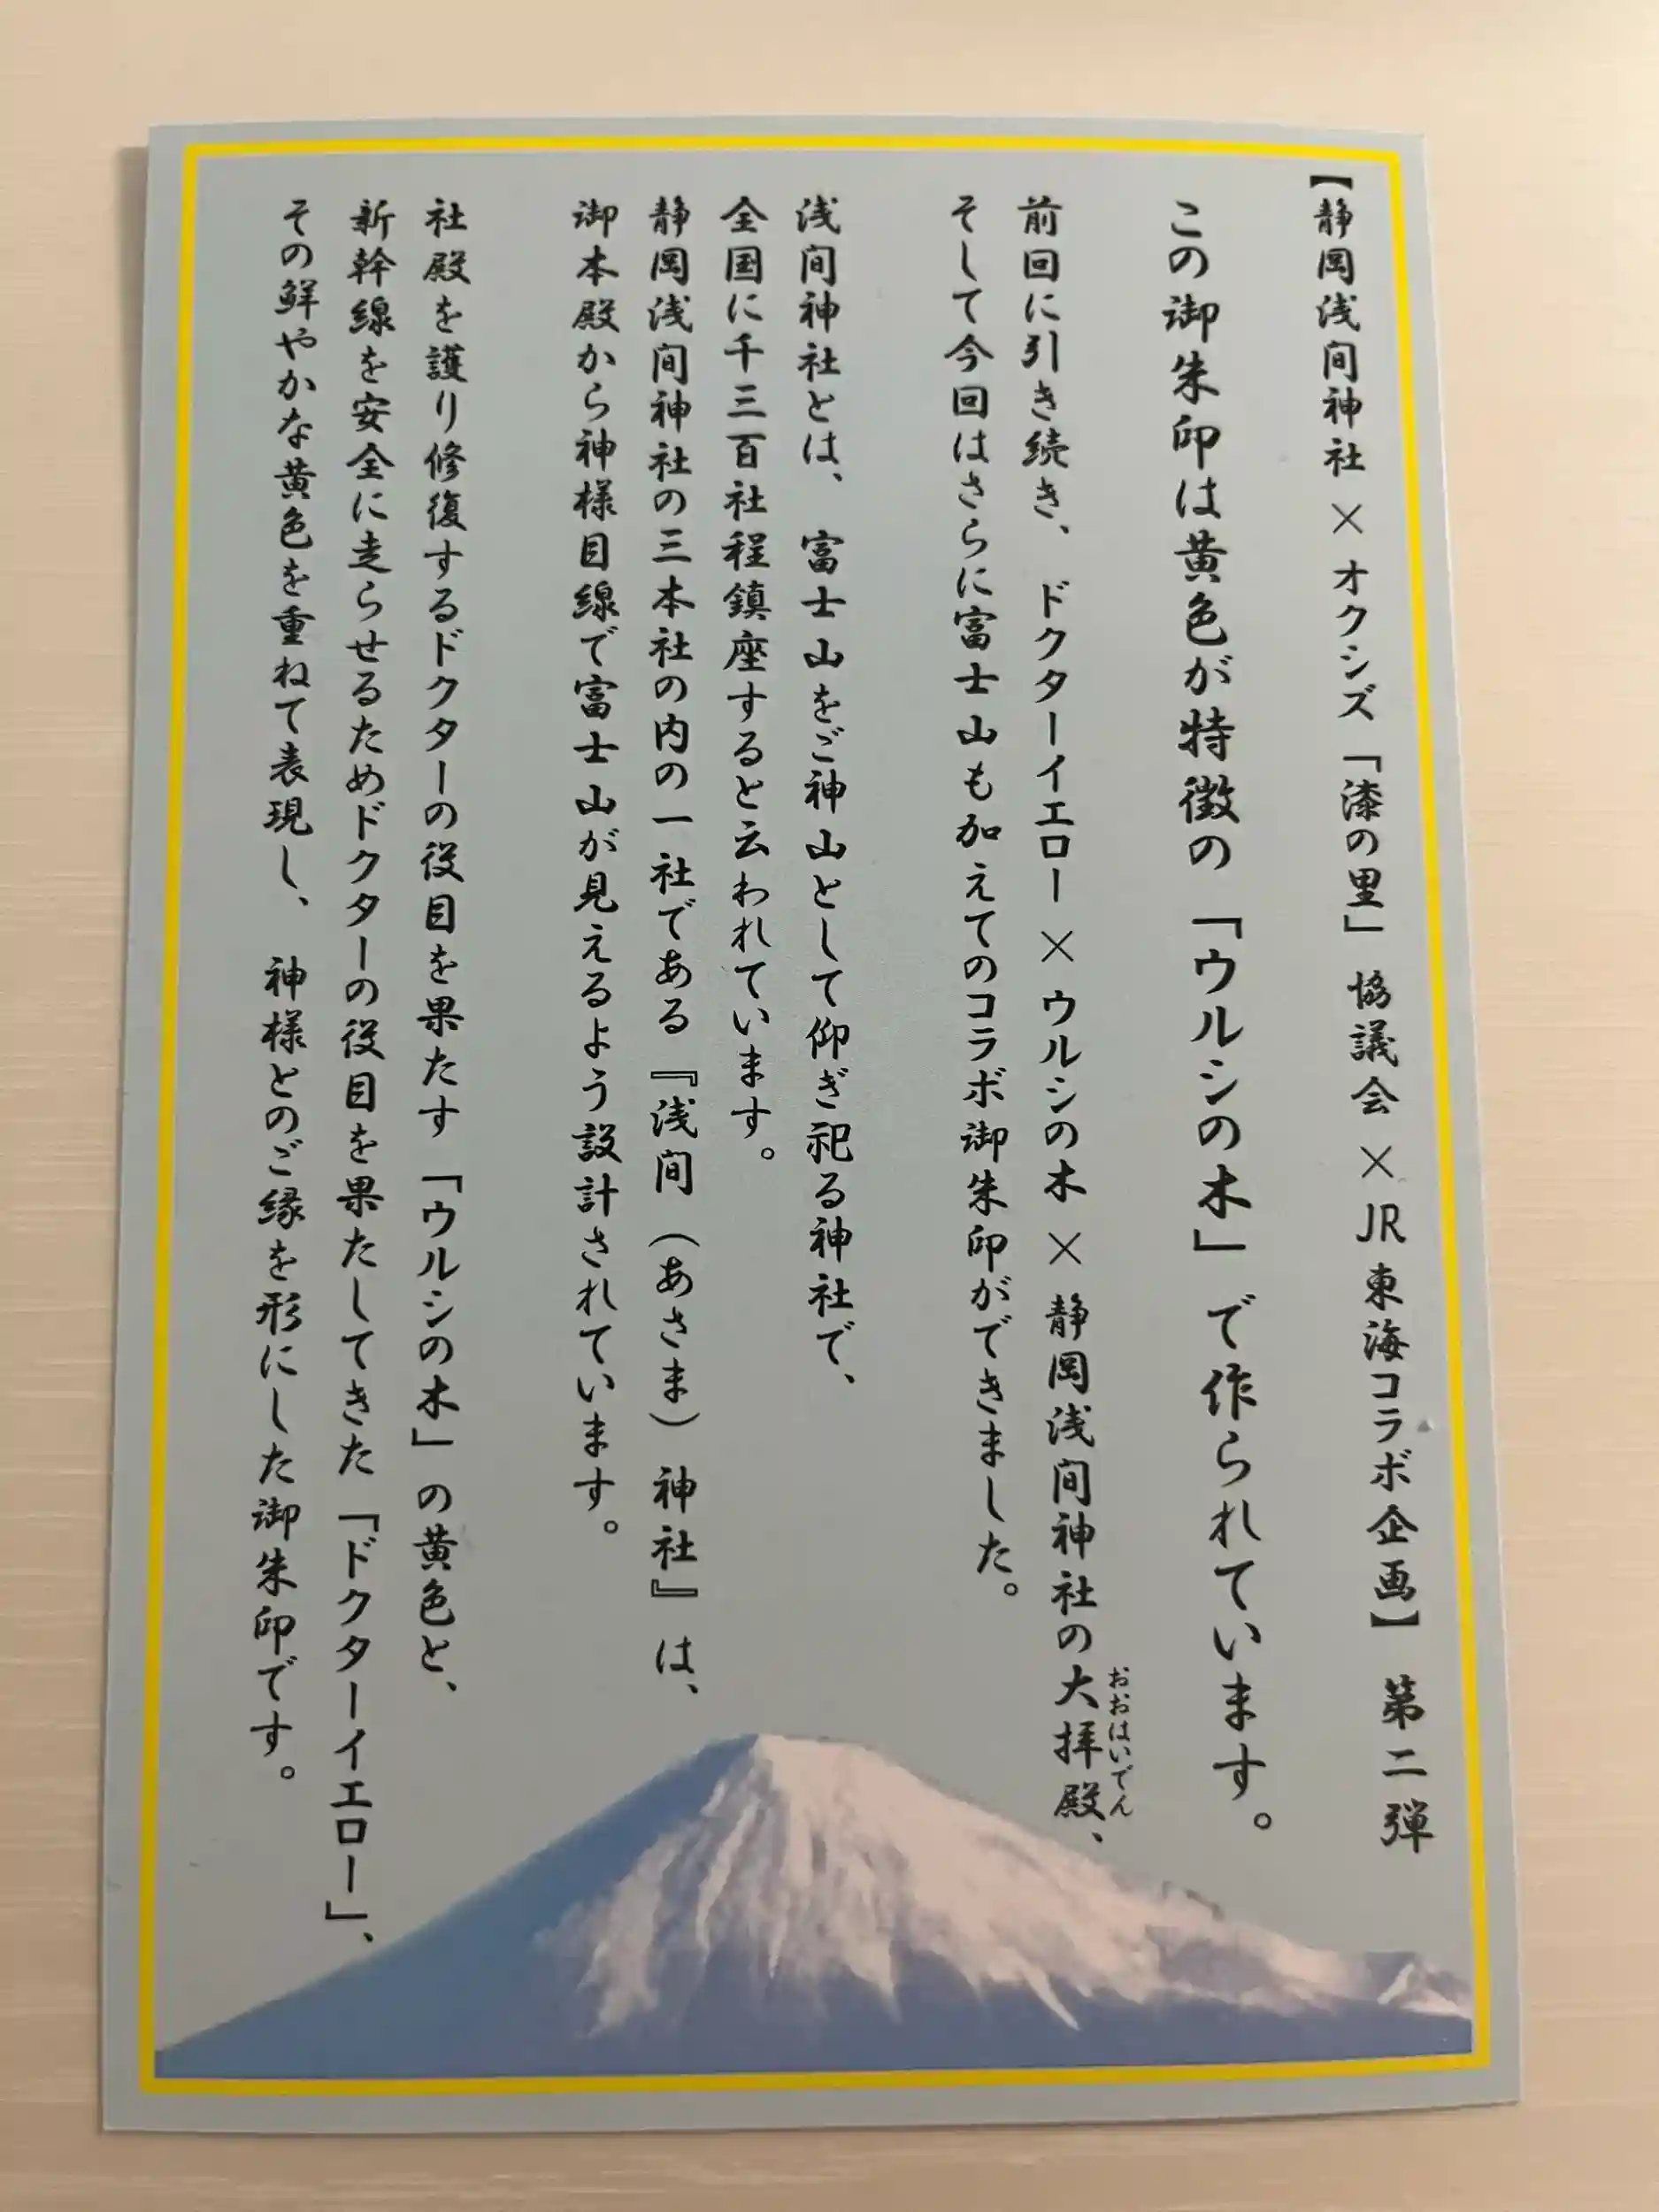 【静岡浅間神社 × オクシズ「漆の里」協議会 × JR東海コラボ企画】 第二弾
この御朱印は黄色が特徴の「ウルシの木」で作られています。
前回に引き続き、ドクターイエロー × ウルシの木 × 静岡浅間神社の大拝殿、
おおはいでん
そして今回はさらに富士山も加えてのコラボ御朱印ができました。
浅間神社とは、富士山をご神山として仰ぎ祀る神社で、
全国に千三百社程鎮座すると云われています。
静岡浅間神社の三本社の内の一社である『浅間（あさま）神社』は、
御本殿から神様目線で富士山が見えるよう設計されています。
社殿を護り修復するドクターの役目を果たす「ウルシの木」の黄色と、
新幹線を安全に走らせるためドクターの役目を果たしてきた「ドクターイエロー」、
その鮮やかな黄色を重ねて表現し、神様とのご縁を形にした御朱印です。